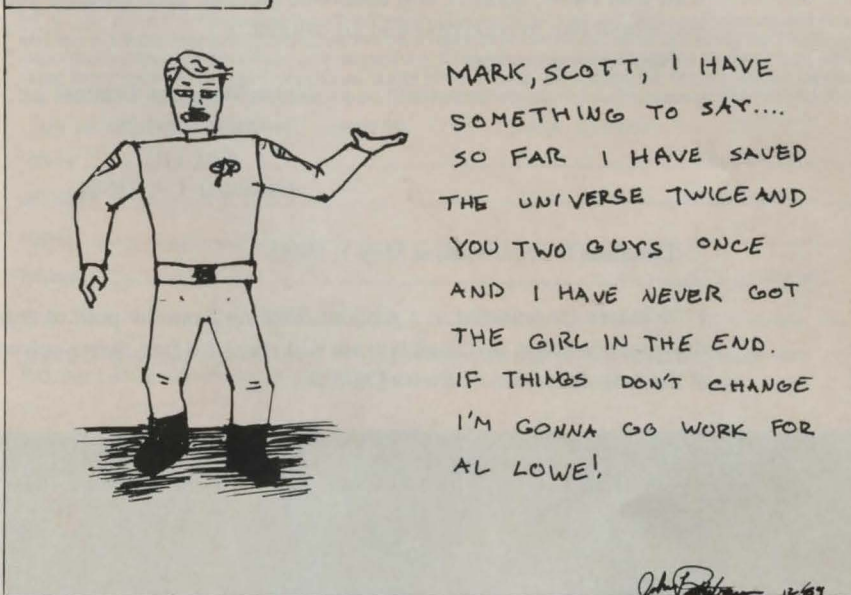 MARK, SCOTT, I HAVE
SOMETHING TO SAY....
SO FAR I HAVE SAVED
THE UNIVERSE TWICE AND
YOU TWO GUYS ONCE
AND I HAVE NEVER GOT
THE GIRL IN THE END.
IF THINGS DON'T CHANGE
I'M GONNA GO WORK FOR
AL LOWE!
John
12/89